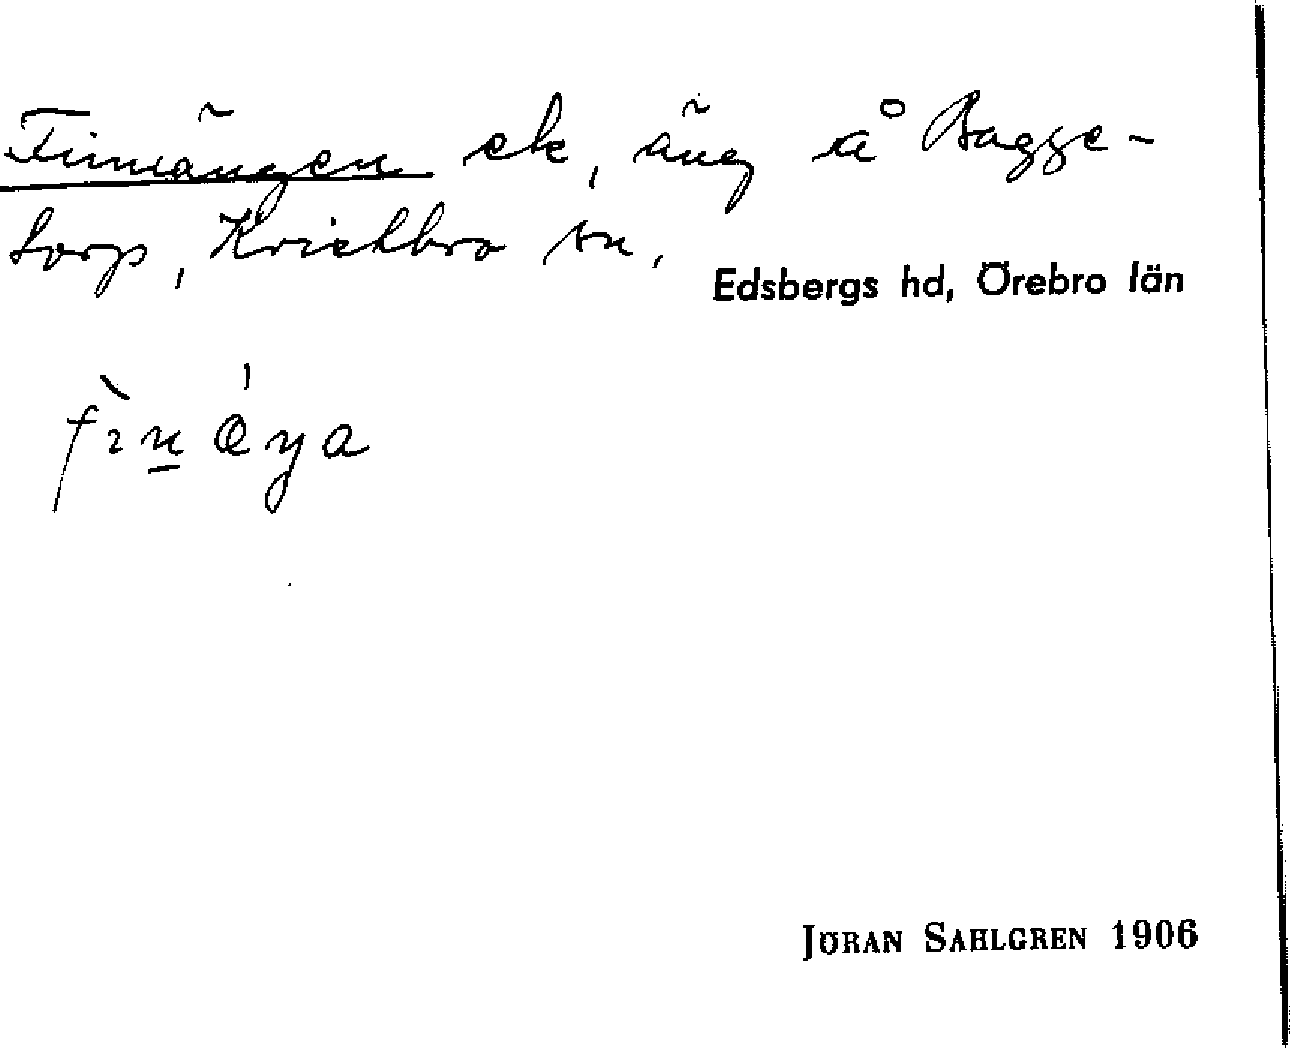 Finnängen ek, äng å Bagge-
torp, Knistbro sn,
Edsbergs hd, Örebro län
JÖRAN SAHLGREN 1906